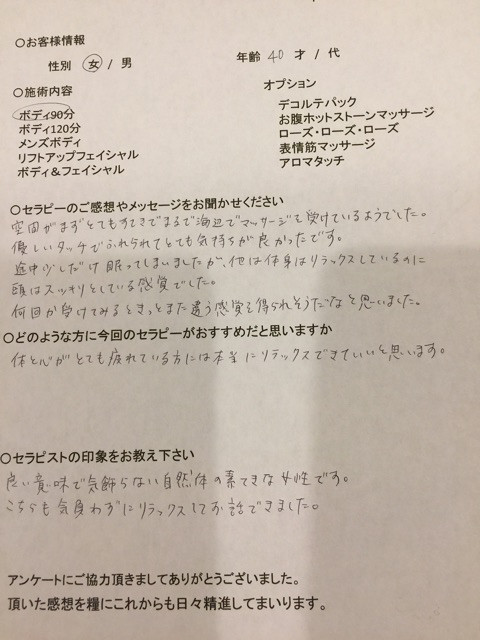 ○お客様情報
性別 女 / 男
年齢 40 才 / 代
○施術内容
ボディ90分
ボディ120分
メンズボディ
リフトアップフェイシャル
ボディ＆フェイシャル
オプション
デコルテパック
お腹ホットストーンマッサージ
ローズ・ローズ・ローズ
表情筋マッサージ
アロマタッチ
○セラピーのご感想やメッセージをお聞かせください
空間がまずとてもすてきでまるで海辺でマッサージを受けているようでした。
優しいタッチでふれられてとても気持ちが良かったです。
途中少しだけ眠ってしまいましたが、他は体身はリラックスしているのに
頭はスッキリとしている感覚でした。
何回か受けてみるときっとまた違う感覚を得られそうだなと思いました。
○どのような方に今回のセラピーがおすすめだと思いますか
体と心がとても疲れている方には本当にリラックスできていいと思います。
○セラピストの印象をお教え下さい
良い意味で気飾らない自然体の素てきな女性です。
こちらも気負わずにリラックスしてお話できました。
アンケートにご協力頂きましてありがとうございました。
頂いた感想を糧にこれからも日々精進してまいります。